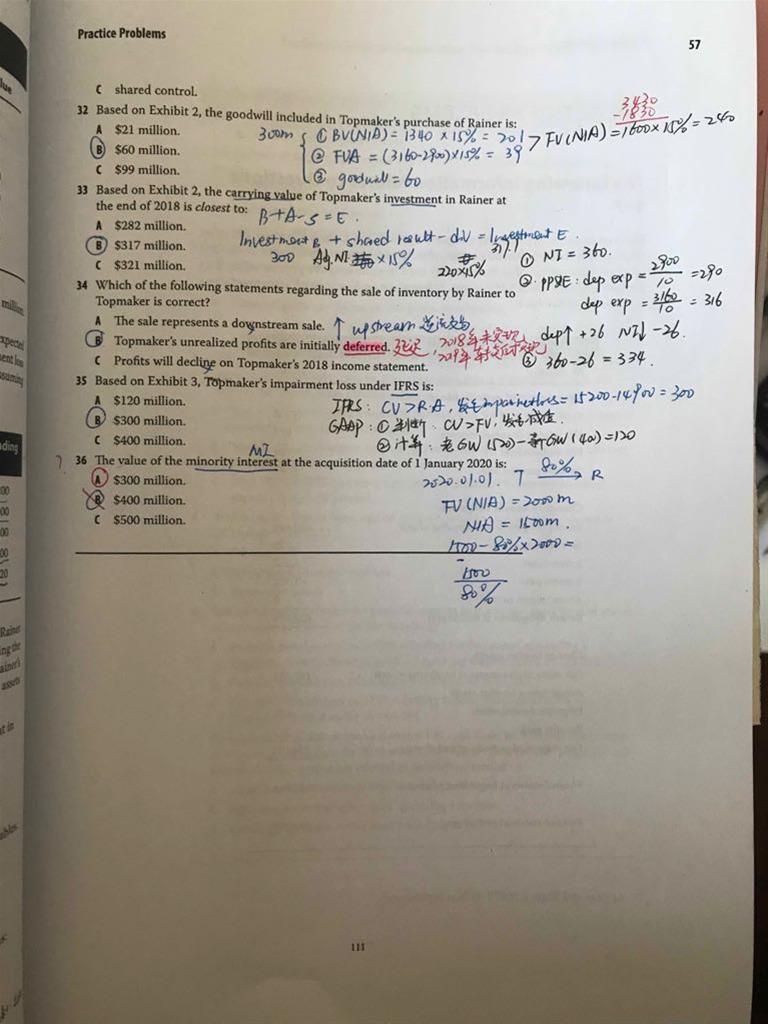 Practice Problems
57
C shared control.
32 Based on Exhibit 2, the goodwill included in Topmaker's purchase of Rainer is:
A $21 million.
B $60 million.
C $99 million.
300m
① BV(NIA) = 1340 × 15% = 201 > FV(NIA) = 1600 × 15% = 240
3430
-1830
② FVA = (3160-2900)×15% = 39
③ goodwill = 60
33 Based on Exhibit 2, the carrying value of Topmaker's investment in Rainer at
the end of 2018 is closest to:
B+A-S=E.
A $282 million.
B $317 million.
C $321 million.
Investment B + shared result - div = Investment E.
300 Adj.NI × 15% 220×15% 317.1
① NI = 360.
② PP&E: dep exp = 2900/10 = 290
dep exp = 3160/10 = 316
dep↑ +26 NI↓ -26.
③ 360-26 = 334.
34 Which of the following statements regarding the sale of inventory by Rainer to
Topmaker is correct?
A The sale represents a downstream sale. ↑ upstream 逆流交易
B Topmaker's unrealized profits are initially deferred. 延迟 2018年未实现
C Profits will decline on Topmaker's 2018 income statement.
35 Based on Exhibit 3, Topmaker's impairment loss under IFRS is:
A $120 million.
B $300 million.
C $400 million.
IFRS: CV>R.A, 发生impairment loss = 15200-14900 = 300
GAAP: ① 判断: CV>FV, 发生减值.
② 计算: 老GW (520) - 新GW (400) = 120
MI
? 36 The value of the minority interest at the acquisition date of 1 January 2020 is:
A $300 million.
B $400 million.
C $500 million.
2020.01.01. T 80% → R
FV(NIA) = 2000m
NIA = 1500m.
1500 - 80% × 2000 =
1500
80%
111